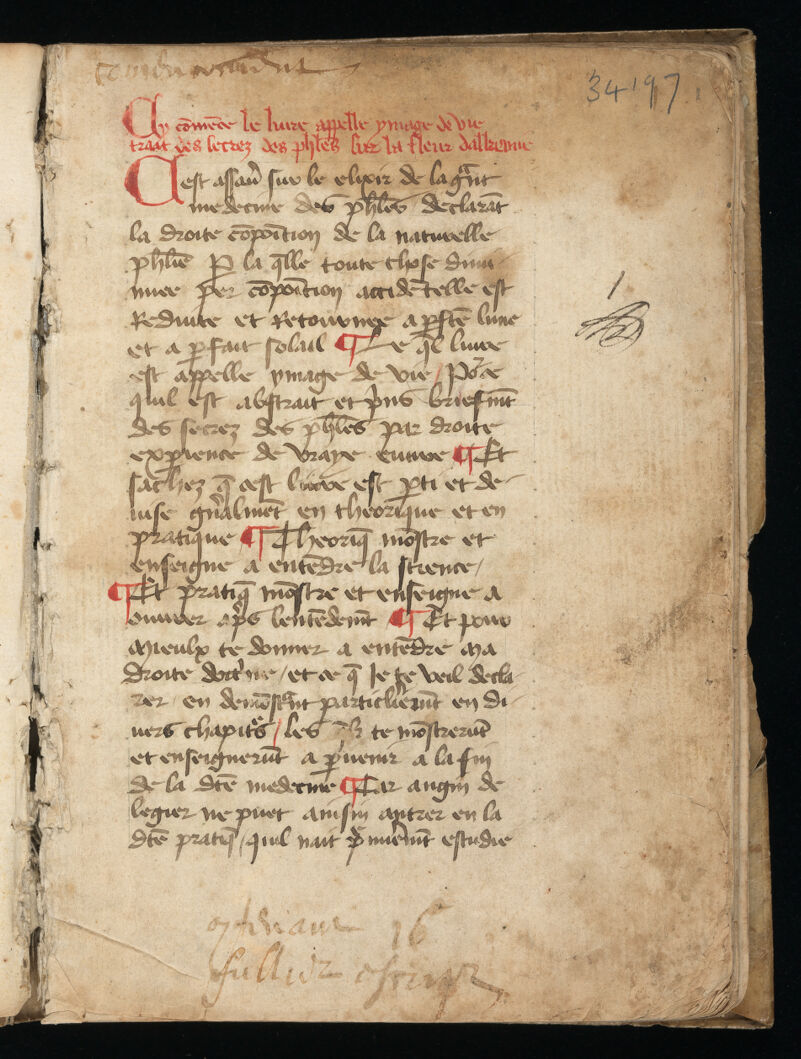 34197
Cy cōmēce le livre appelle ymage de vie
trait des secrez des phl̄es sur la fleur dalkemie
Cest assav̄ sur le elixir de la gr̄nt
medecine des phl̄es declarāt
la droite cōpoītion de la naturelle
phl̄ie Par la q̄lle toute chose dimi
nuee per cōpoītion accidētelle est
Reduite et Retournee a p̱fc̄te lune
et a p̱fait solail ¶ Le q̄l livre
est appelle ymage de vie / Po͛ce
quil est abstrait et p̄ns briefmt̄
des secrez des phl̄es par droite
exp̱ience de vraye euvre ¶ Et
sachez q̄ cest livre est p̱ti et de-
vise gn̄alment̄ en theorique et en
pratique ¶ Theoriq̄ mōstre et
enseigne a entēdre la science /
¶ Et pratiq̄ mōstre et enseigne a
ouvrer ap̄s lentēdemt̄ ¶ Et pour
Mieulx te donner a entēdre ma
droite doct͛ne / et ce q̄ Je te veil decla-
rer en demōstrant particlieremt̄ en di-
vers chapitr̄s / les q̄lz te mōstrerūt
et enseignerūt a p̱venir a la fin
de la dc̄te medecine ¶ Car aucun de
legier ne puet ainsin antrer en la
dc̄te pratiq̄ / quil nait p̄miermt̄ estudie
16